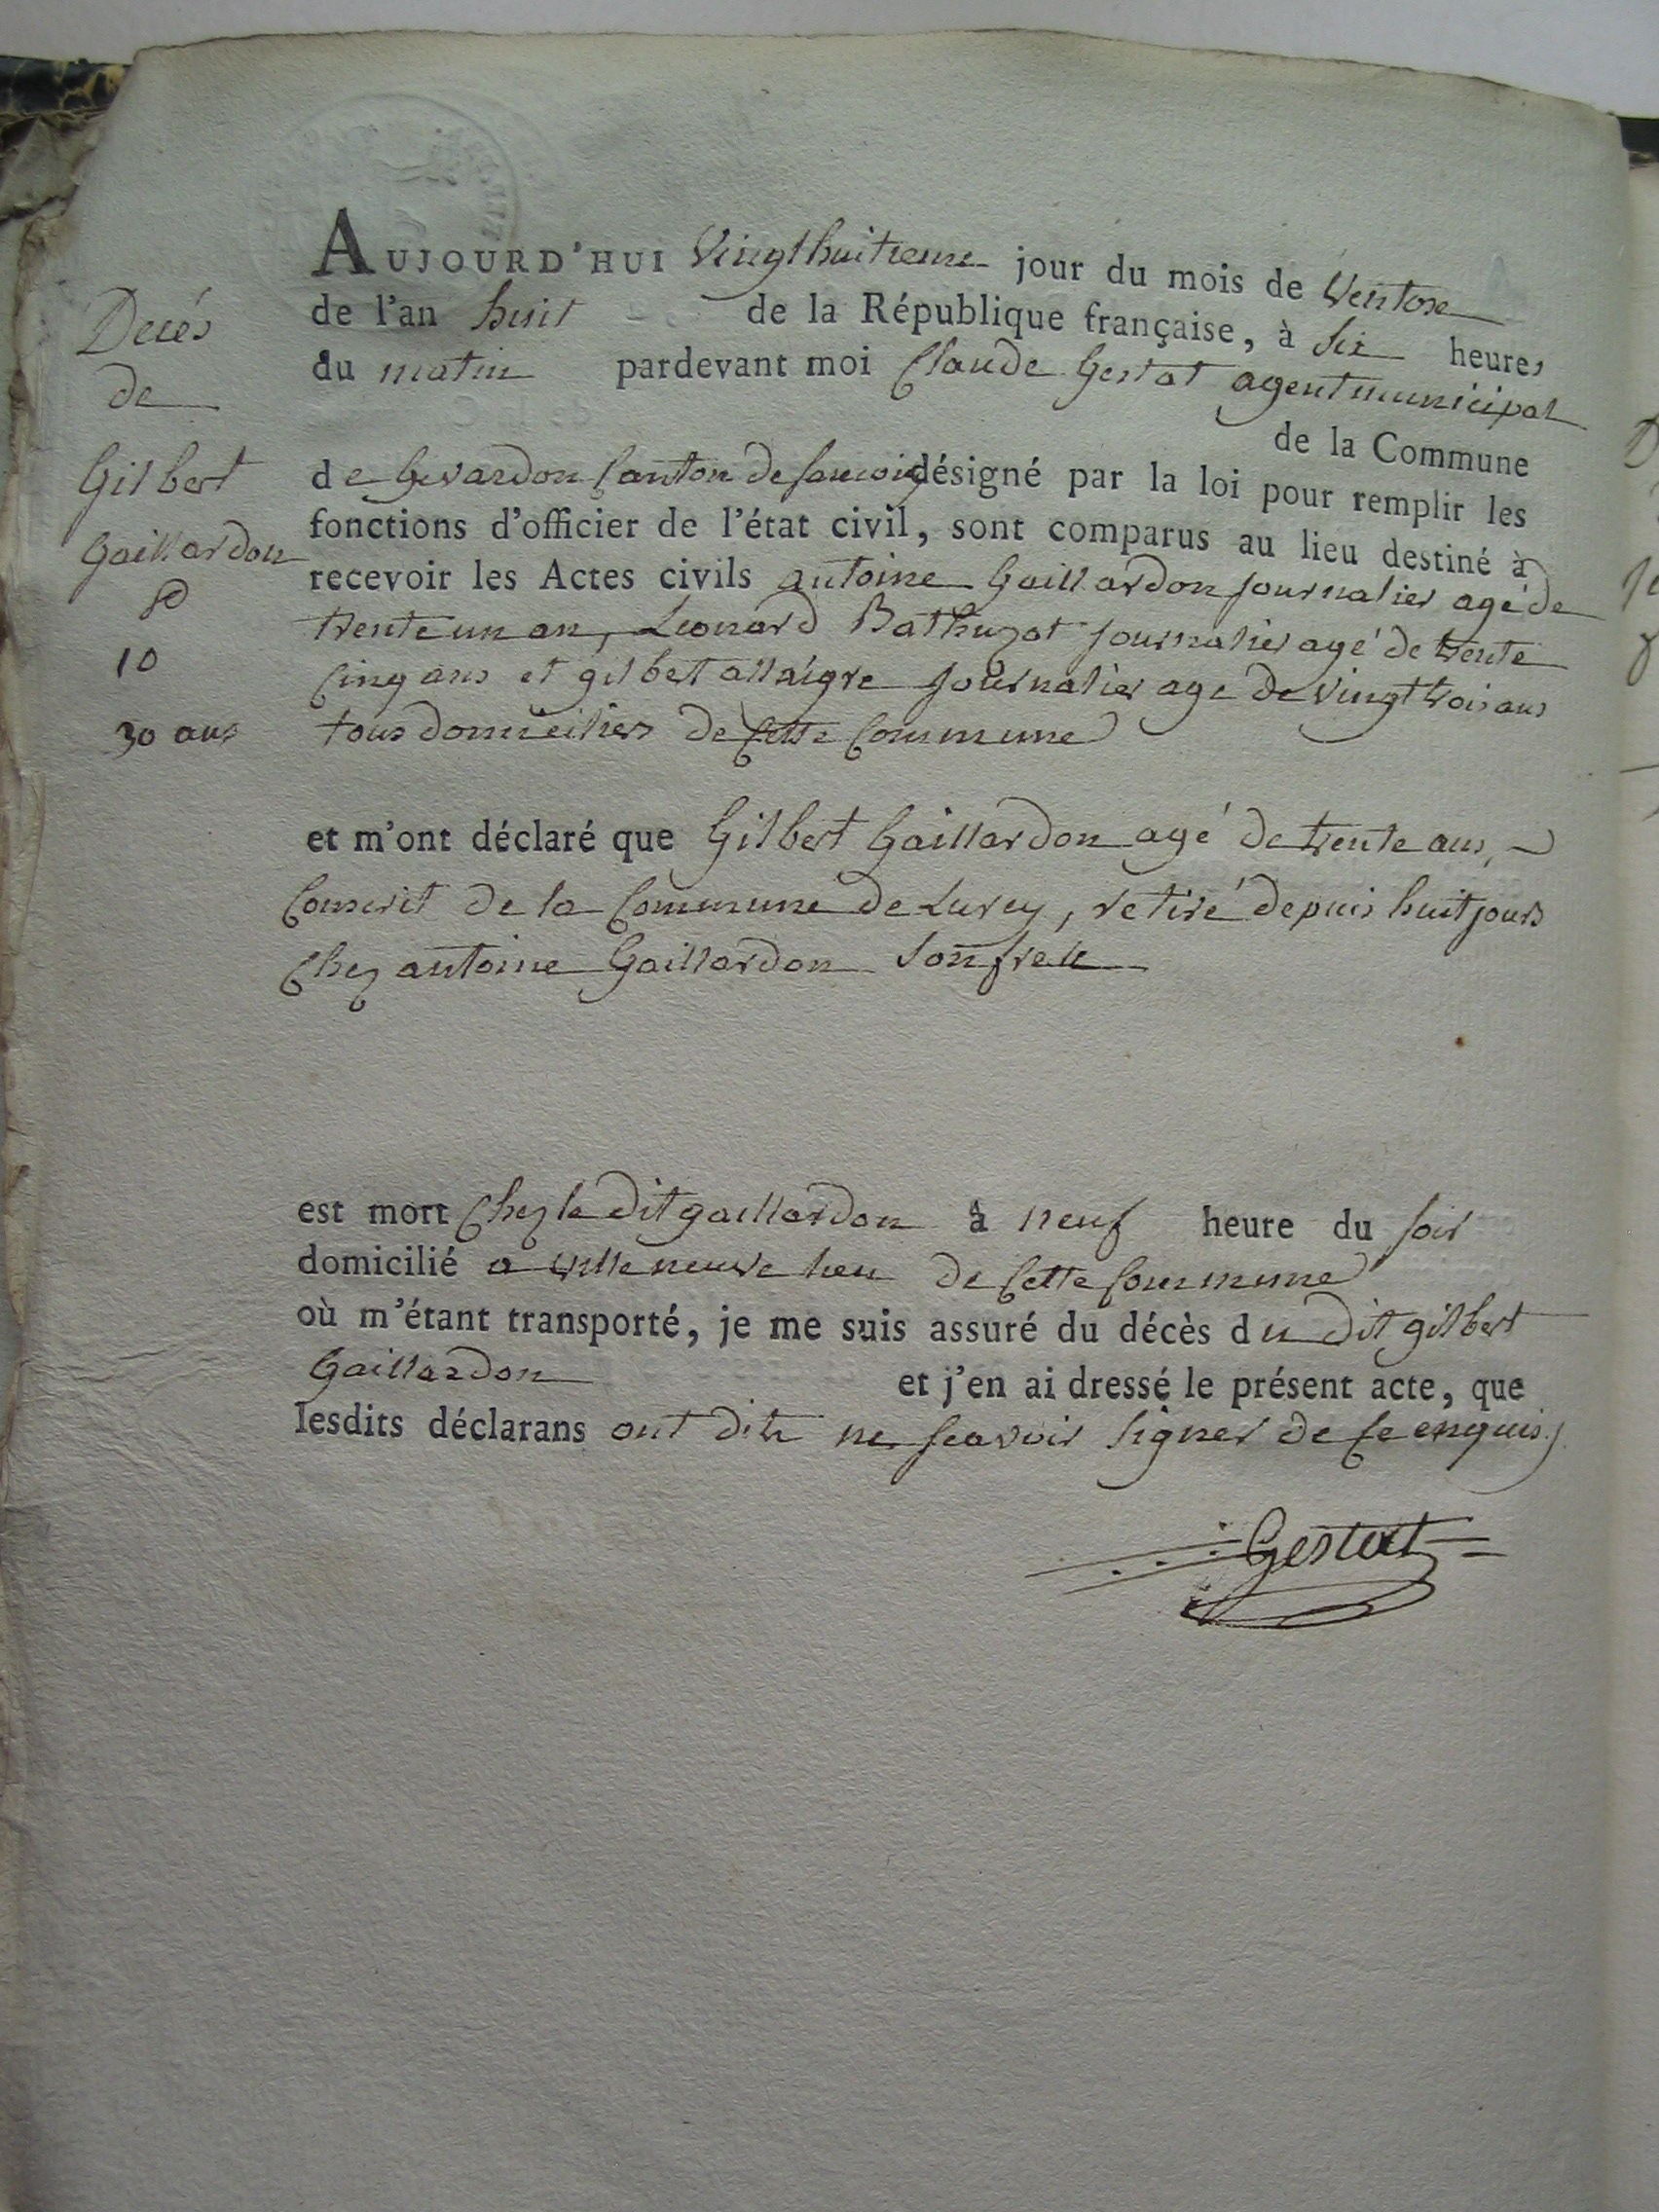 Decés
de
Gilbert
Gaillardon
10
30 ans
AUJOURD'HUI Vingt huitieme jour du mois de Ventose
de l'an huit de la République française, à Six heures
du matin pardevant moi Claude Gestat agent municipal
de la Commune
de Givardon Canton de sancoins désigné par la loi pour remplir les
fonctions d'officier de l'état civil, sont comparus au lieu destiné à
recevoir les Actes civils antoine Gaillardon journalier agé de
trente un an, Leonard Bathuzat journalier agé de trente
Cinq ans et gilbert allaigre journalier agé de vingt trois ans
tous domiciliers de Cette Commune
et m'ont déclaré que Gilbert Gaillardon agé de trente ans,
Conscrit de la Commune de Lurcy, retiré depuis huit jours
Chez antoine Gaillardon Son frere
est mort Chez le dit gaillardon à neuf heure du soir
domicilié a villeneuve lieu de Cette Commune
où m'étant transporté, je me suis assuré du décès du dit gilbert
Gaillardon et j'en ai dressé le présent acte, que
lesdits déclarans ont dits ne scavoir signer de Ce enquis
Gestat